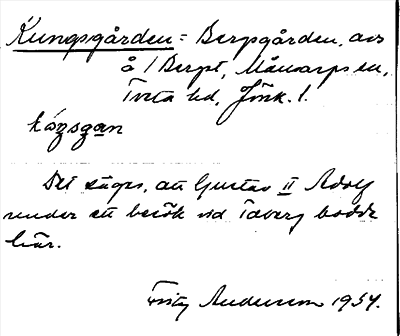 Kungsgården = Bergsgården, avs
å 1 Berget, Månsarps sn,
Tveta hd, Jönk. l.
Det säges, att Gustav II Adolf
under ett besök vid Taberg bodde
här.
Fritz Anderson 1954.